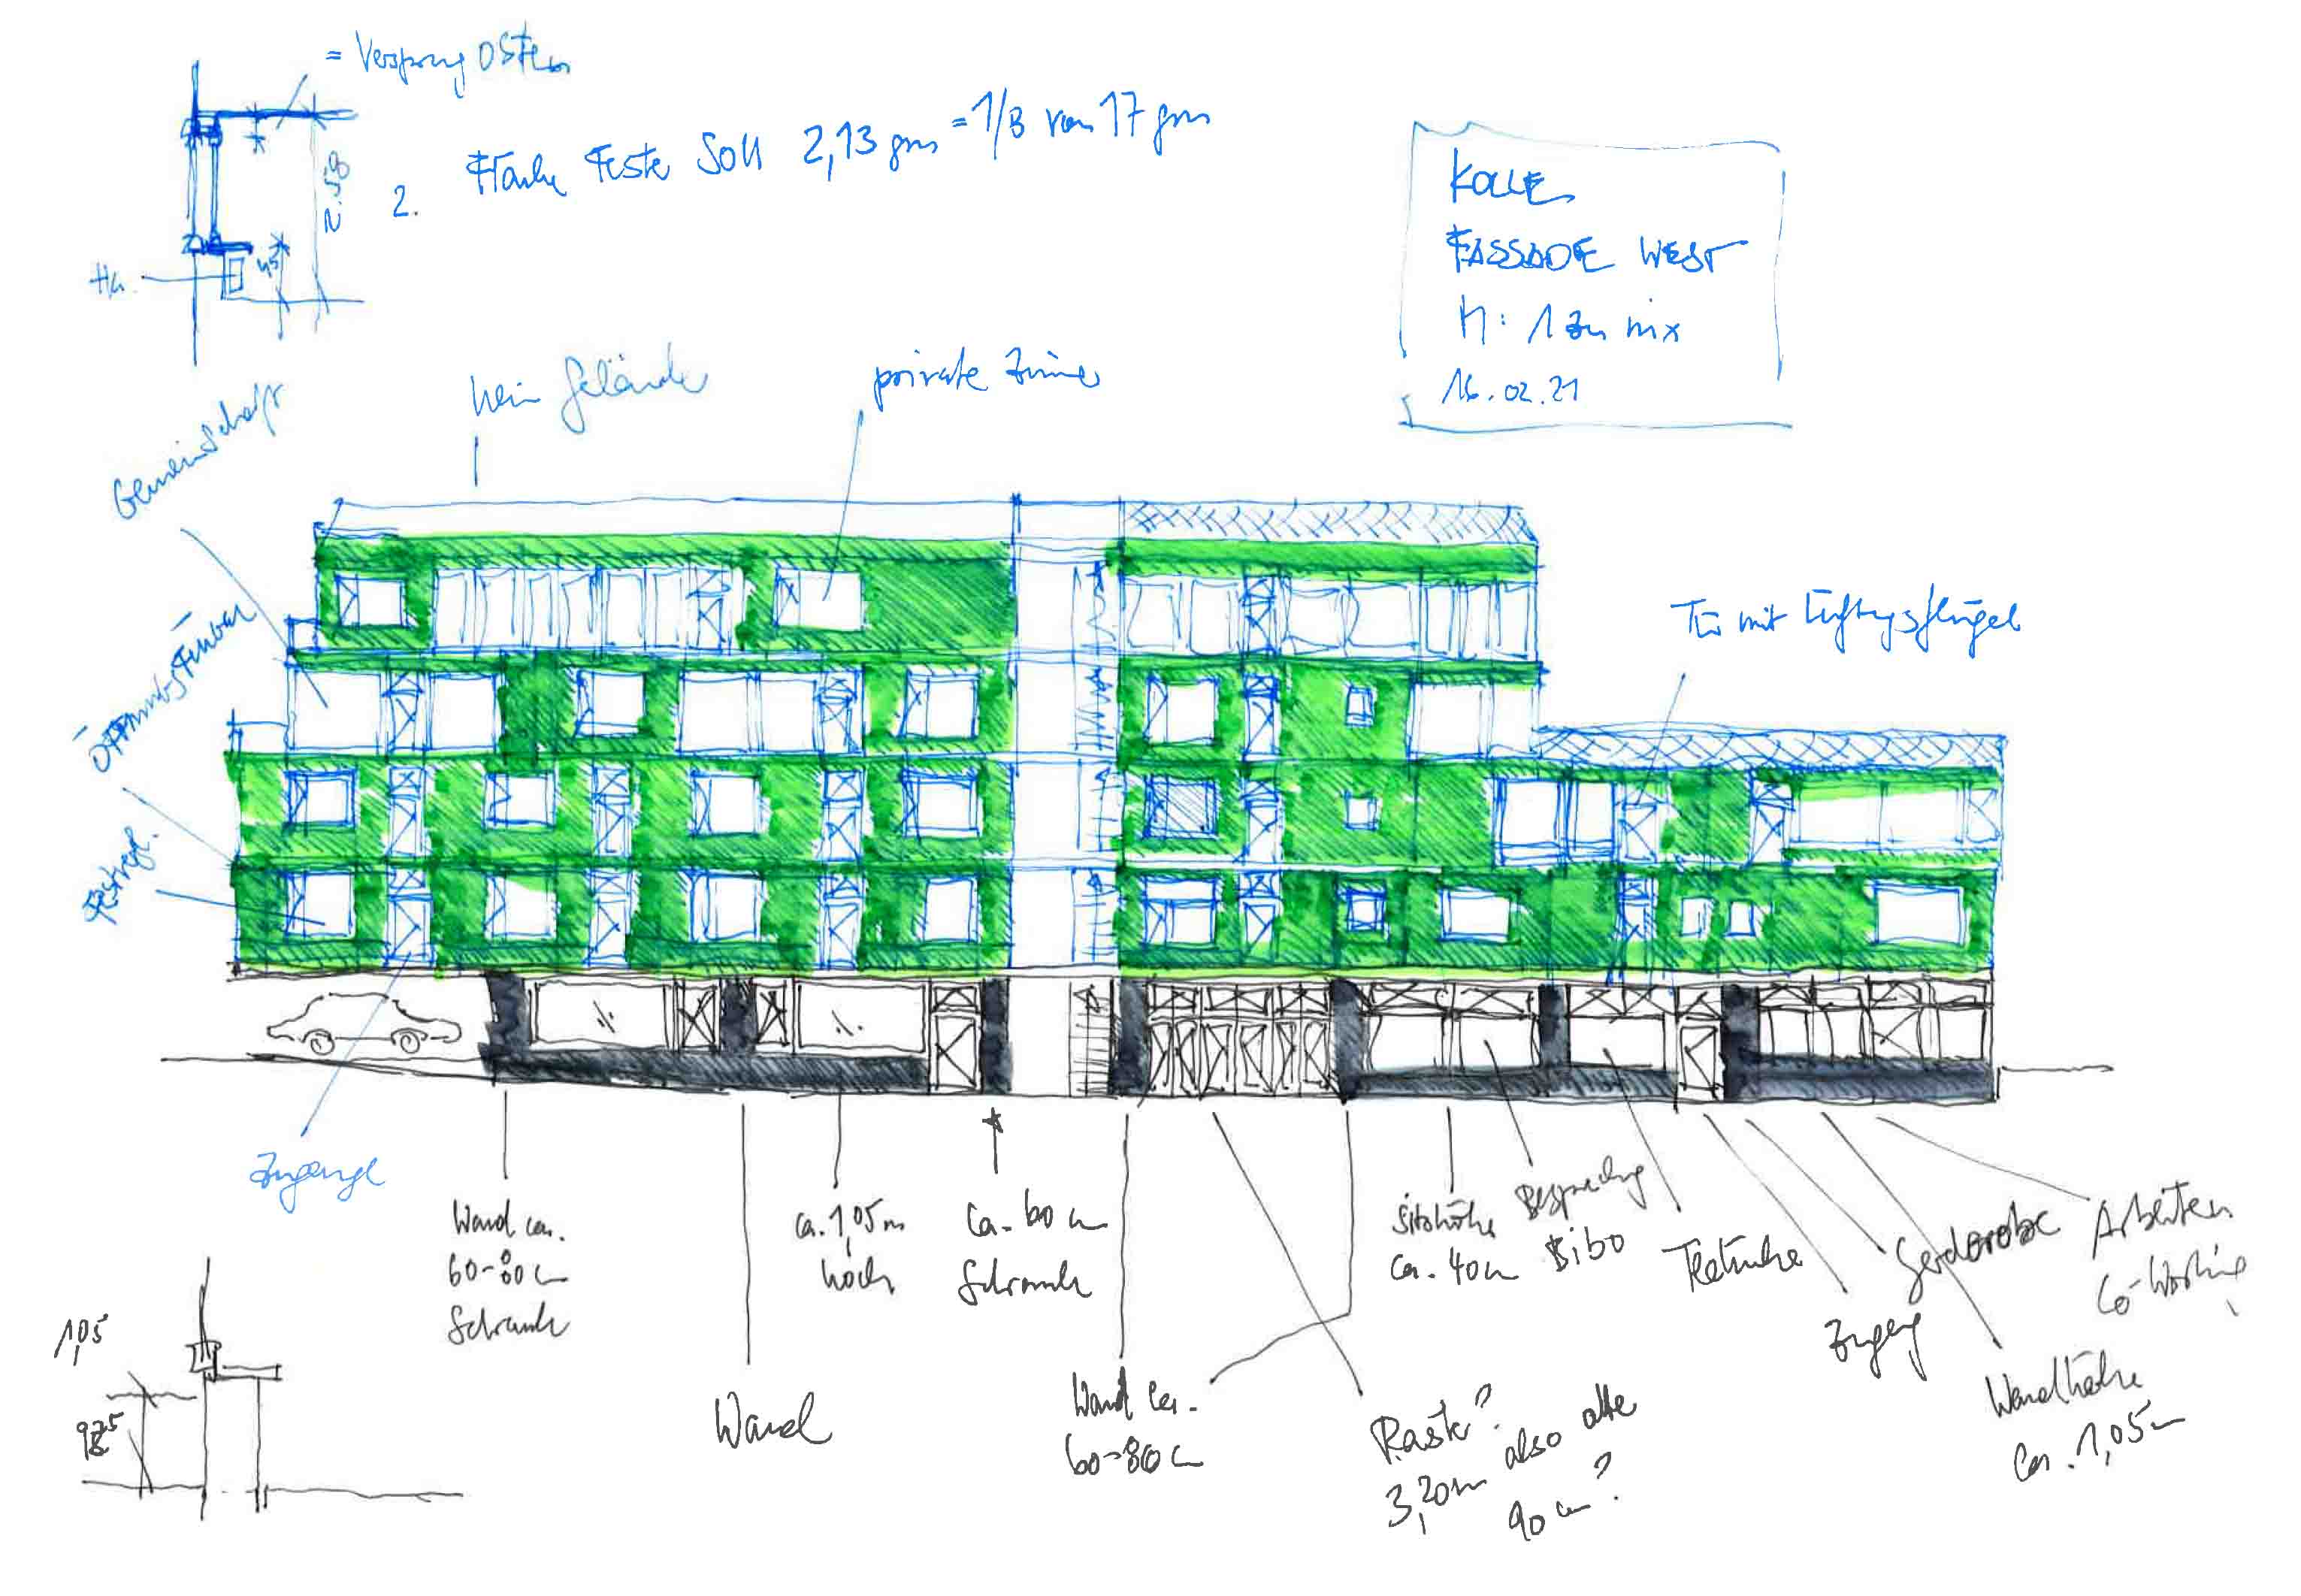 = Versprung Osten
2.58
45
2. Fläche Feste Soll 2,13 qm = 1/8 von 17 qm
KOLLE
FASSADE WEST
M: 1 zu nix
16.02.21
kein Gelände
private Zimmer
Gemeinschaft
Tür mit Lüftungsflügel
Öffnungsfenster
Zugangl
Wand ca.
60-80 c
Schrank
Wand
ca. 1,05 m
hoch
Ca. 60 c
Schrank
Wand ca.
60-80 c
Raster?
3,20m also alle
90 cm?
Sitzhöhe
ca. 40 c
Besprechung
Bibo
Teeküche
Zugang
Garderobe
Wandhöhe
ca. 1,05
Arbeiten
Co-Working
1,05